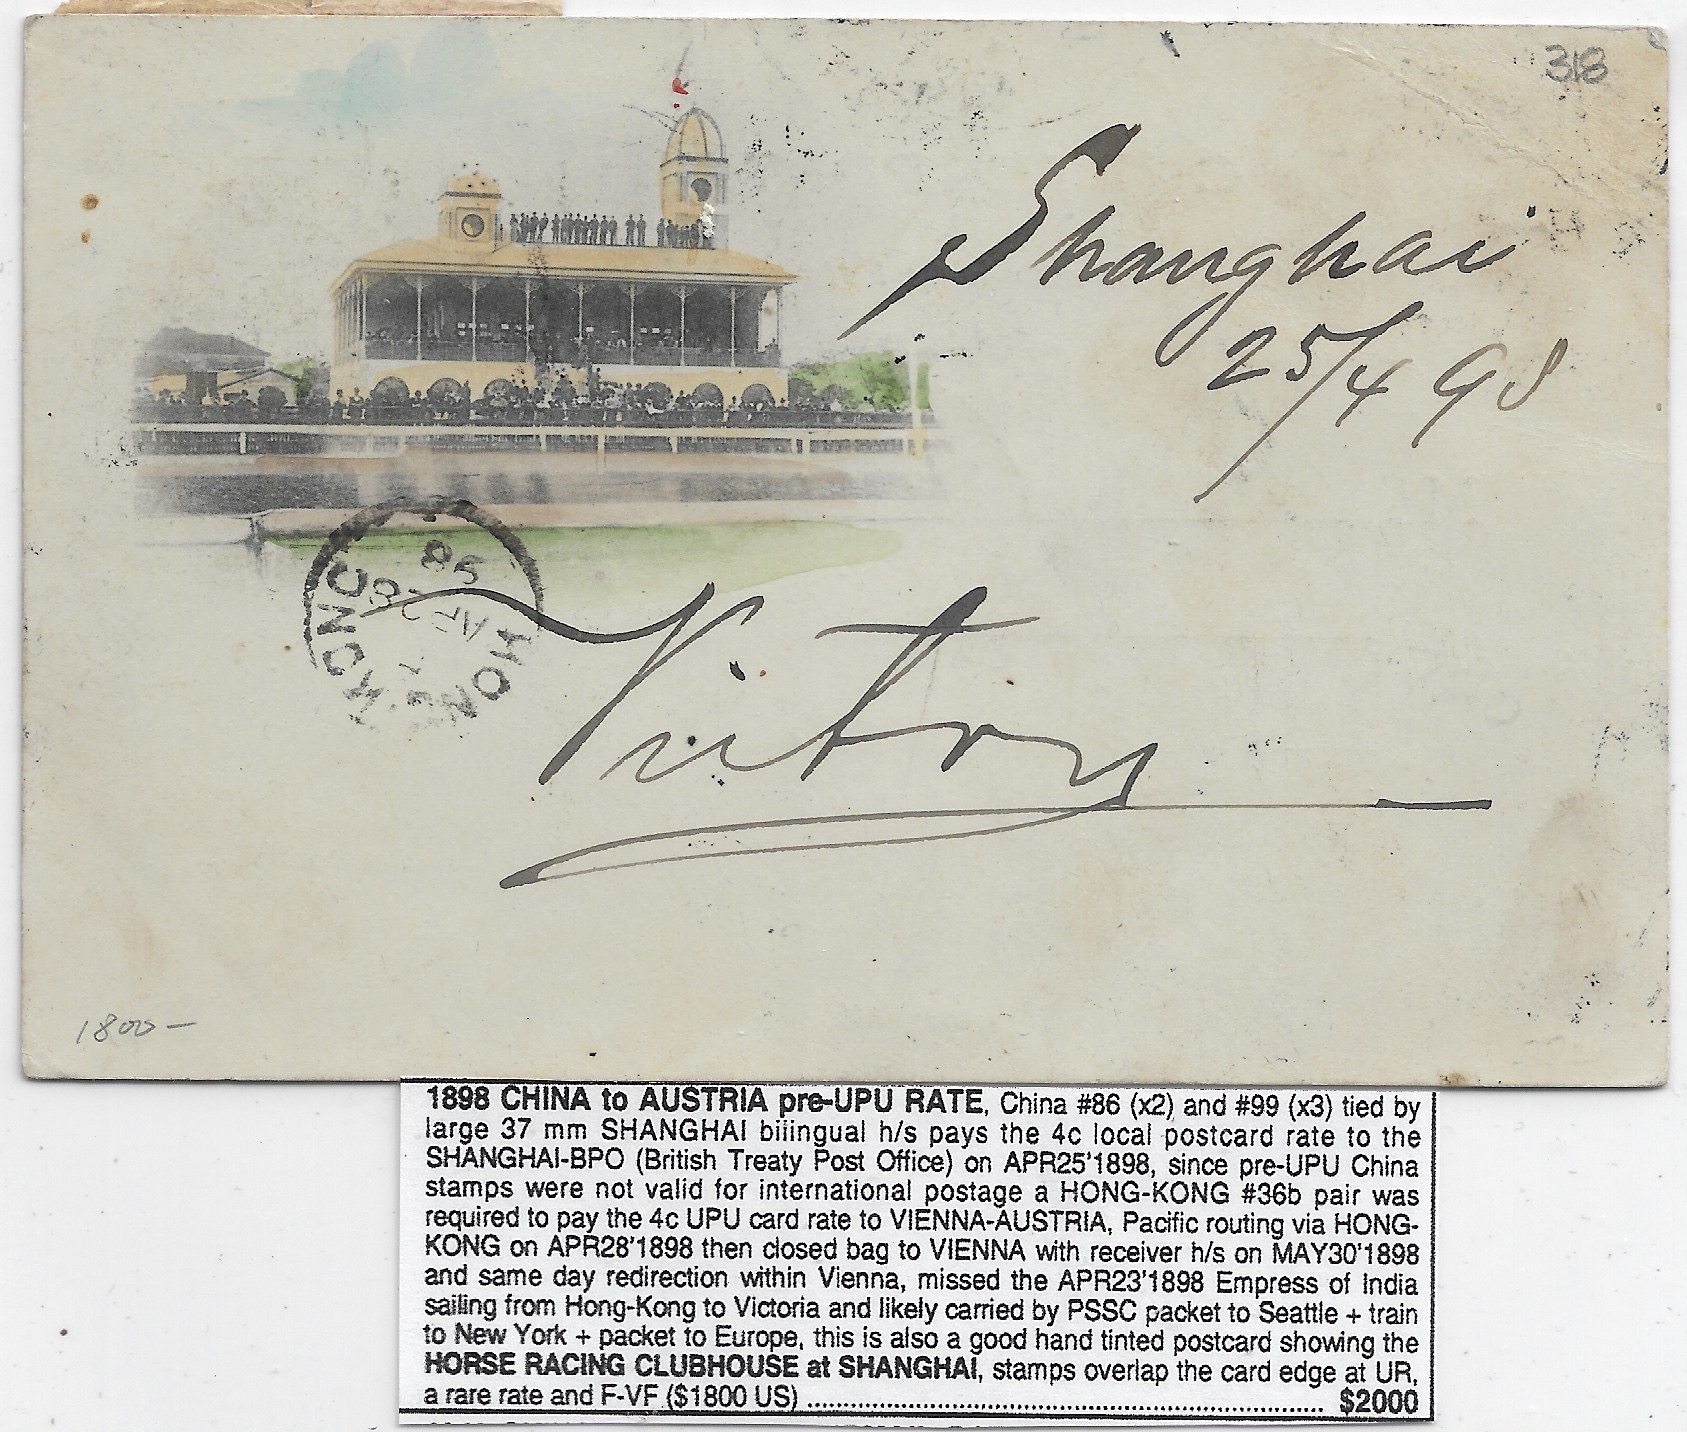 318
Shanghai
25/4 98
HONG KONG
AP 28
98
Victory
1800-
1898 CHINA to AUSTRIA pre-UPU RATE, China #86 (x2) and #99 (x3) tied by
large 37 mm SHANGHAI bilingual h/s pays the 4c local postcard rate to the
SHANGHAI-BPO (British Treaty Post Office) on APR25'1898, since pre-UPU China
stamps were not valid for international postage a HONG-KONG #36b pair was
required to pay the 4c UPU card rate to VIENNA-AUSTRIA, Pacific routing via HONG-
KONG on APR28'1898 then closed bag to VIENNA with receiver h/s on MAY30'1898
and same day redirection within Vienna, missed the APR23'1898 Empress of India
sailing from Hong-Kong to Victoria and likely carried by PSSC packet to Seattle + train
to New York + packet to Europe, this is also a good hand tinted postcard showing the
HORSE RACING CLUBHOUSE at SHANGHAI, stamps overlap the card edge at UR,
a rare rate and F-VF ($1800 US) ........................................................................ $2000